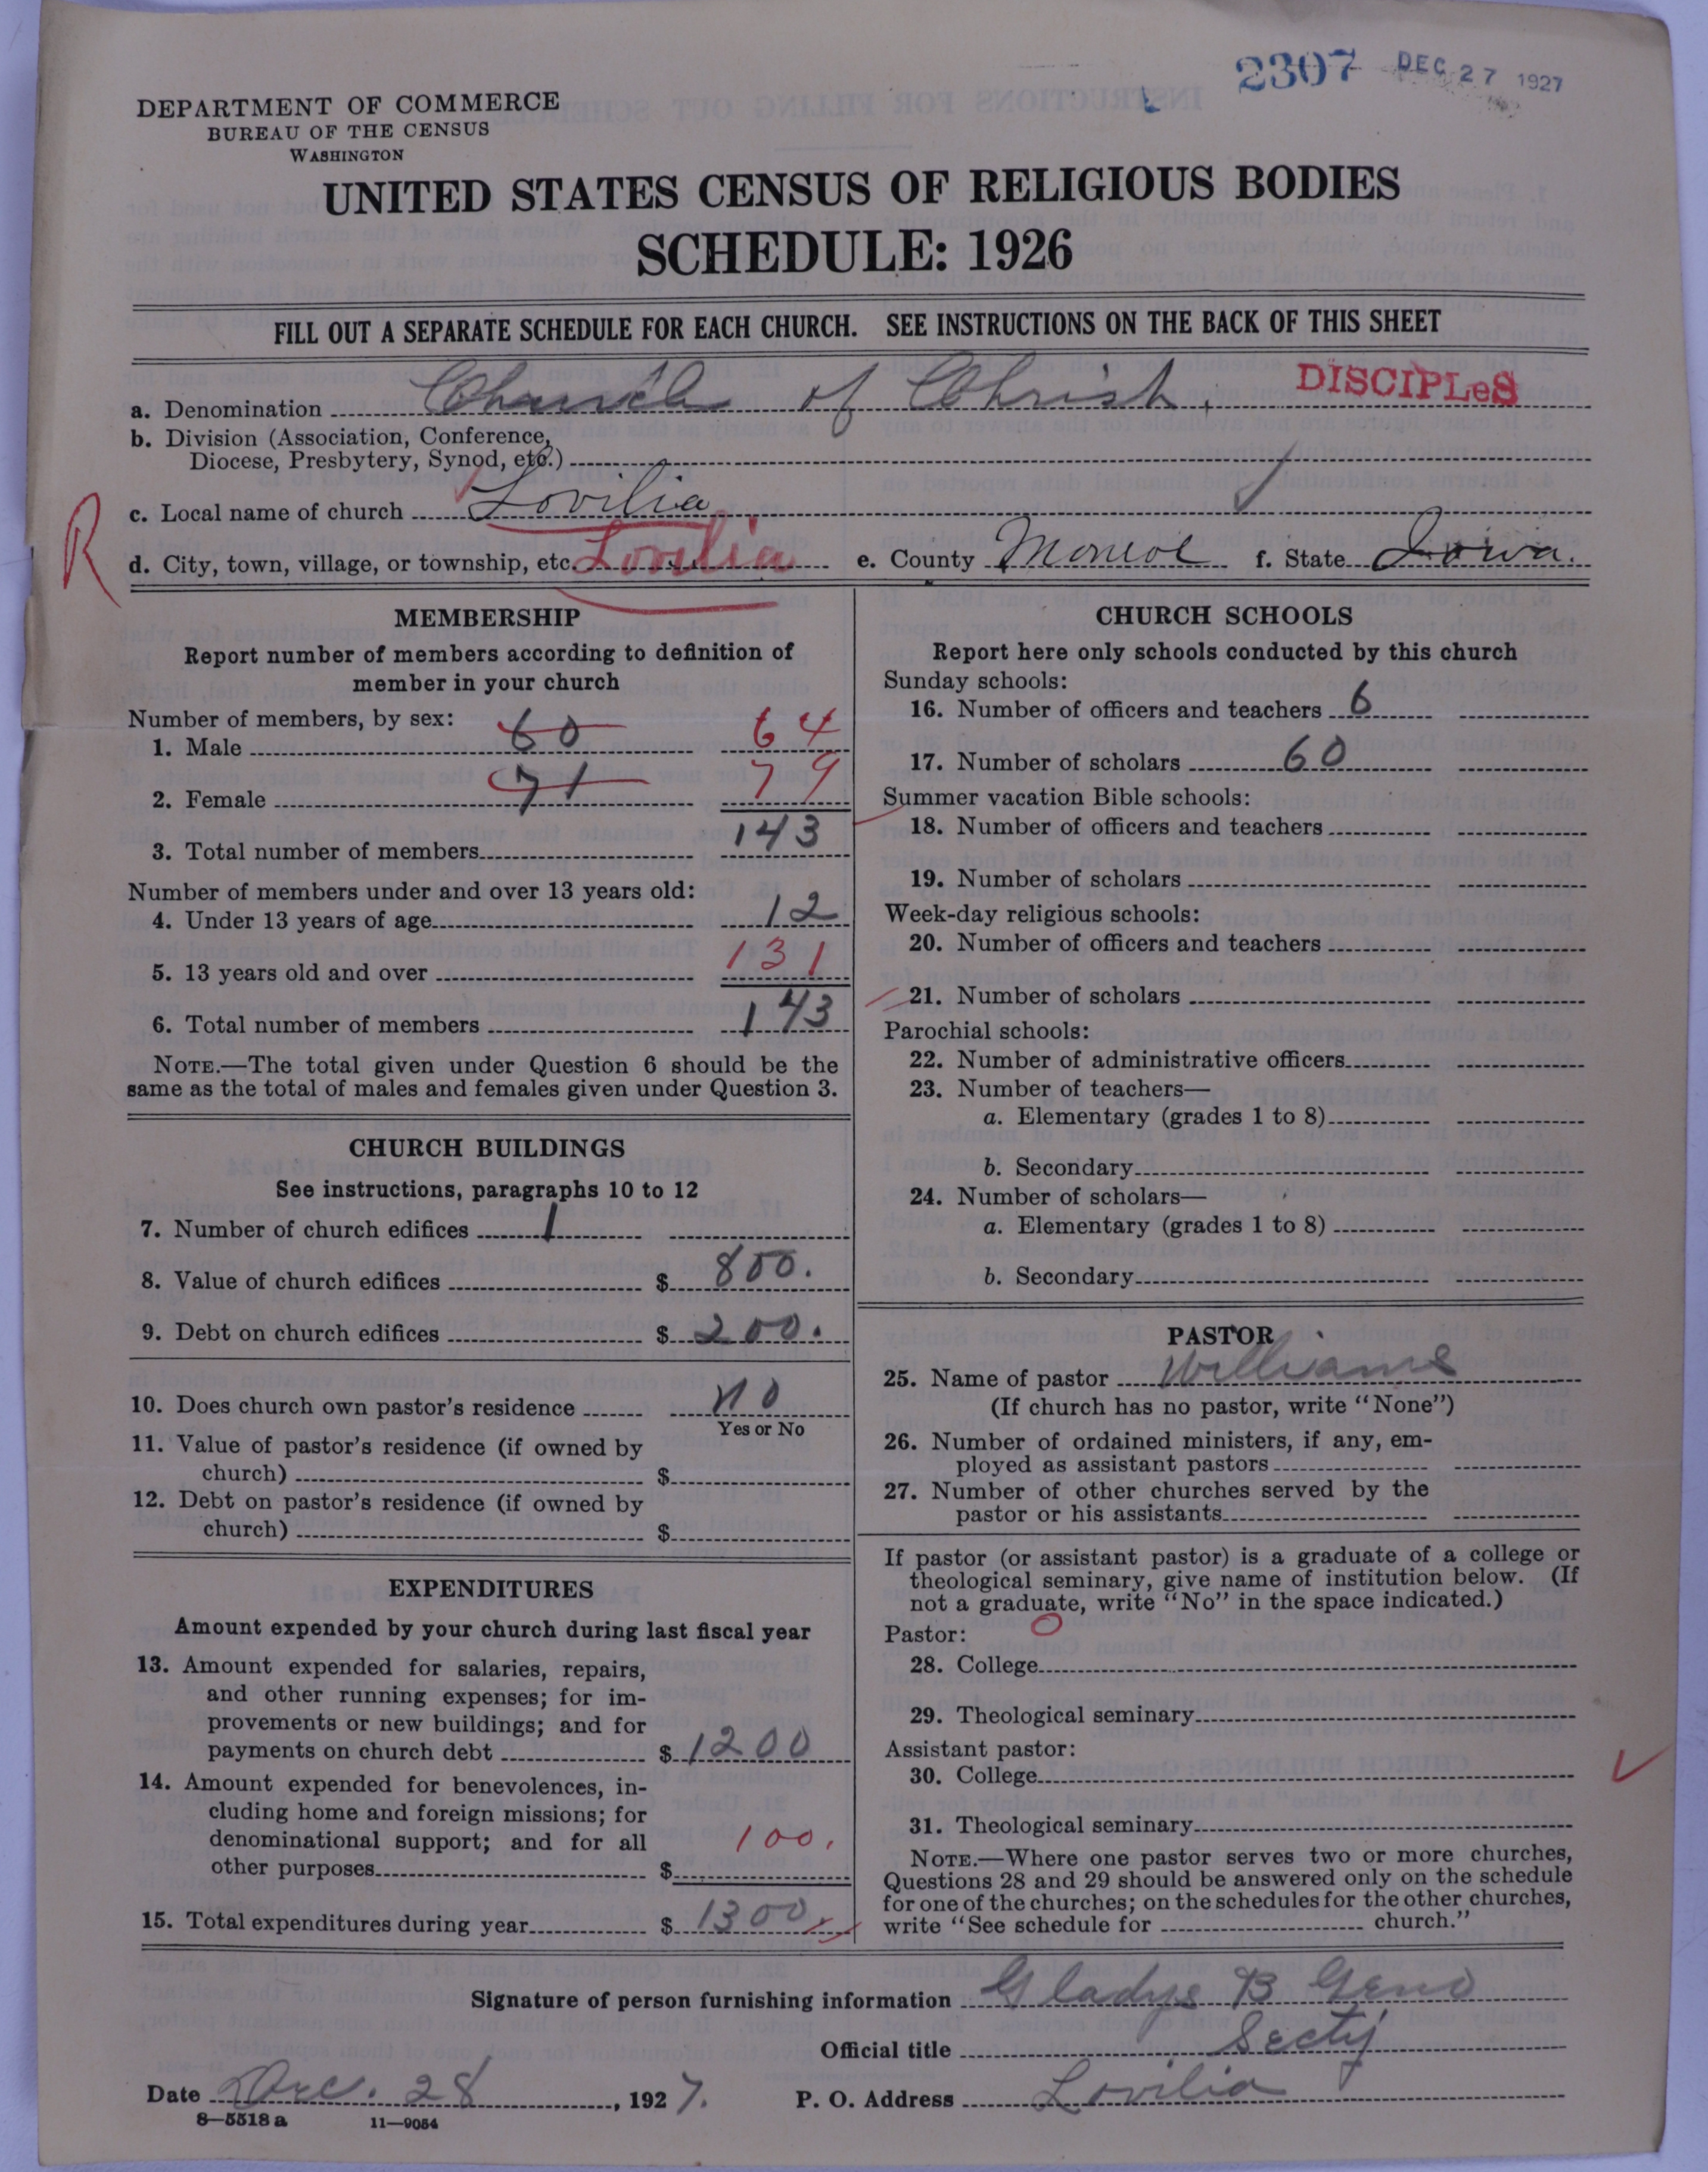 2307 DEC 27 1927
DEPARTMENT OF COMMERCE
BUREAU OF THE CENSUS
WASHINGTON
UNITED STATES CENSUS OF RELIGIOUS BODIES
SCHEDULE: 1926
FILL OUT A SEPARATE SCHEDULE FOR EACH CHURCH. SEE INSTRUCTIONS ON THE BACK OF THIS SHEET
a. Denomination Church of Christ. DISCIPLeS
b. Division (Association, Conference,
Diocese, Presbytery, Synod, etc.)
c. Local name of church Lovilia
R
d. City, town, village, or township, etc. Lovilia e. County Monroe f. State Iowa.
MEMBERSHIP
Report number of members according to definition of
member in your church
Number of members, by sex:
1. Male 60 64
2. Female 71 79
3. Total number of members 143
Number of members under and over 13 years old:
4. Under 13 years of age 12
5. 13 years old and over 131
6. Total number of members 143
NOTE.—The total given under Question 6 should be the
same as the total of males and females given under Question 3.
CHURCH BUILDINGS
See instructions, paragraphs 10 to 12
7. Number of church edifices 1
8. Value of church edifices $ 800.
9. Debt on church edifices $ 200.
10. Does church own pastor's residence no
Yes or No
11. Value of pastor's residence (if owned by
church) $
12. Debt on pastor's residence (if owned by
church) $
EXPENDITURES
Amount expended by your church during last fiscal year
13. Amount expended for salaries, repairs,
and other running expenses; for im-
provements or new buildings; and for
payments on church debt $ 1200
14. Amount expended for benevolences, in-
cluding home and foreign missions; for
denominational support; and for all
other purposes $ 100.
15. Total expenditures during year $ 1300.
CHURCH SCHOOLS
Report here only schools conducted by this church
Sunday schools:
16. Number of officers and teachers 6
17. Number of scholars 60
Summer vacation Bible schools:
18. Number of officers and teachers
19. Number of scholars
Week-day religious schools:
20. Number of officers and teachers
21. Number of scholars
Parochial schools:
22. Number of administrative officers
23. Number of teachers—
a. Elementary (grades 1 to 8)
b. Secondary
24. Number of scholars—
a. Elementary (grades 1 to 8)
b. Secondary
PASTOR
25. Name of pastor Williams
(If church has no pastor, write "None")
26. Number of ordained ministers, if any, em-
ployed as assistant pastors
27. Number of other churches served by the
pastor or his assistants
If pastor (or assistant pastor) is a graduate of a college or
theological seminary, give name of institution below. (If
not a graduate, write "No" in the space indicated.)
Pastor:
28. College
29. Theological seminary
Assistant pastor:
30. College
31. Theological seminary
NOTE.—Where one pastor serves two or more churches,
Questions 28 and 29 should be answered only on the schedule
for one of the churches; on the schedules for the other churches,
write "See schedule for church."
Signature of person furnishing information Gladys B Geno
Official title Secty
Date Dec. 28, 1927. P. O. Address Lovilia
8—5518 a 11—9054